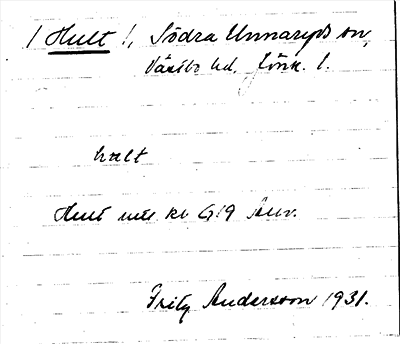 ! Hult !, Södra Unnaryds sn,
Västbo hd, Jönk. l.
hult
Hult mtl kb G19 Anv.
Fritz Andersson 1931.